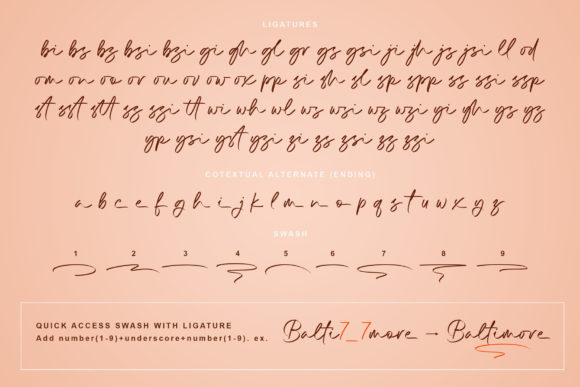 LIGATURES
bi bs bz bsi bzi gi gh gl gr gs gsi ji jh js jsi ll od
om on oo or on ov ow ox pp si sh sl sp spp ss ssi ssp
st sst stt sz szi tt wi wh wl ws wsi wz wzi yi yh ys yz
yp ysi yst yzi zi zs zsi zz zzi
COTEXTUAL ALTERNATE (ENDING)
a b c e f g h i j k l m n o p q s t u w x y z
SWASH
1 2 3 4 5 6 7 8 9
QUICK ACCESS SWASH WITH LIGATURE
Add number(1-9)+underscore+number(1-9). ex.
Balti7_7more → Baltimore